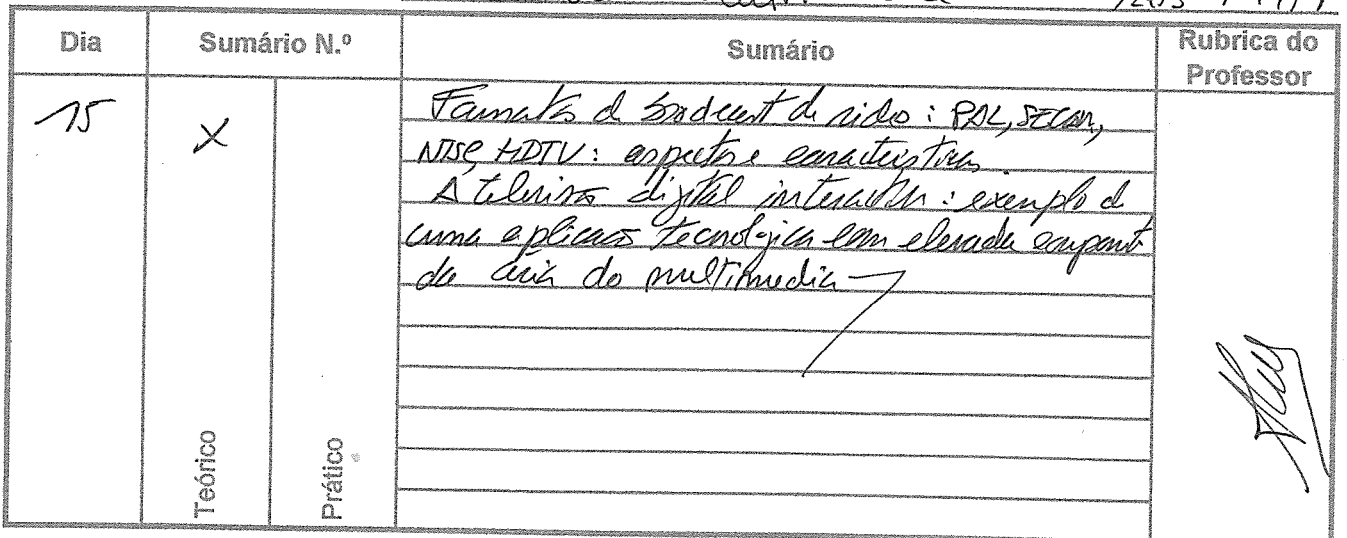 Dia Sumário N.º Sumário Rubrica do Professor
15 X
Formatos de broadcast de vídeo : PAL, SECAM,
NTSC, HDTV : aspectos e características.
A televisão digital interactiva : exemplo de
uma aplicação tecnológica com elevada component
da área do multimedia
Teórico
Prático